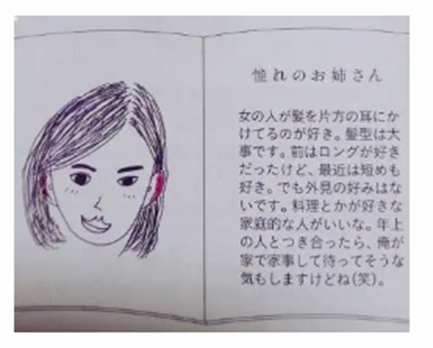 憧れのお姉さん
女の人が髪を片方の耳にか
けてるのが好き。髪型は大
事です。前はロングが好き
だったけど、最近は短めも
好き。でも外見の好みはな
いです。料理とかが好きな
家庭的な人がいいな。年上
の人とつき合ったら、俺が
家で家事して待ってそうな
気もしますけどね(笑)。